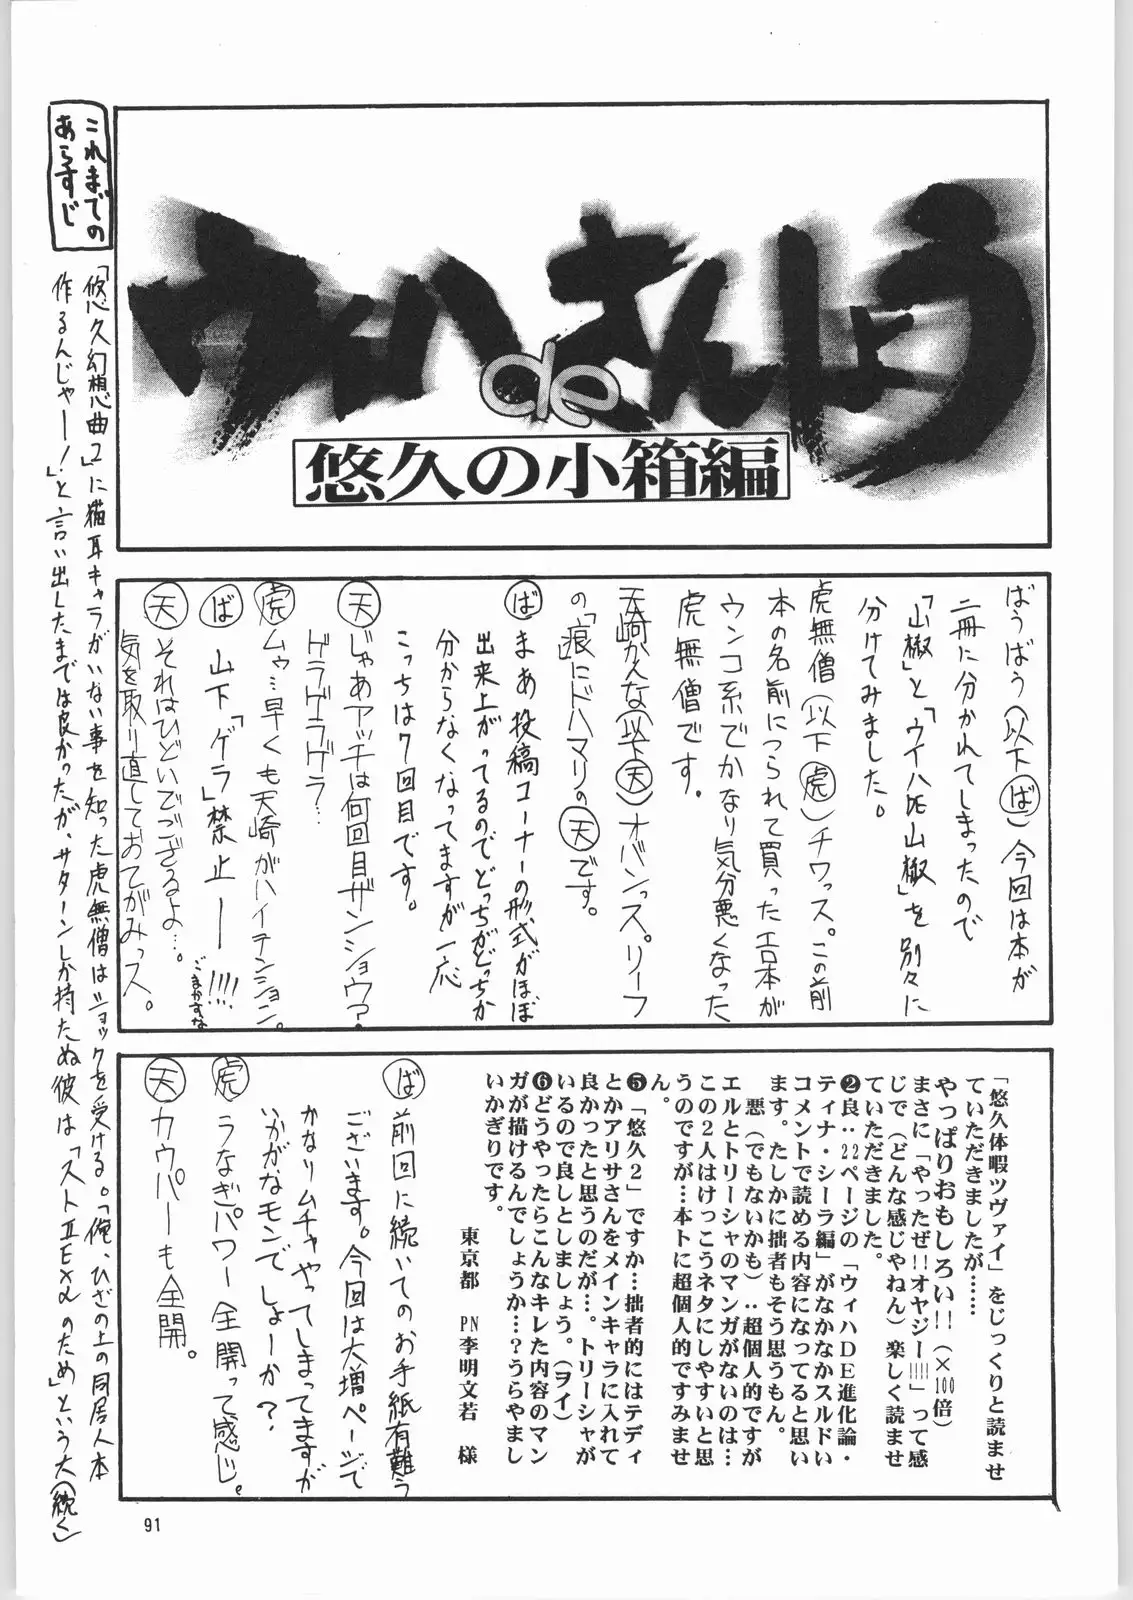 ウィハ de さんしょう
悠久の小箱編
ばうばう(以下ば)今回は本が
二冊に分かれてしまったので
「山椒」と「ウィハDE山椒」を別々に
分けてみました。
虎無僧(以下虎)チワッス。この前
本の名前につられて買ったエロ本が
ウンコ系でかなり気分悪くなった
虎無僧です。
天崎かえな(以下天)オバンっス。リーフ
の「痕」にドハマリの天です。
ば まあ投稿コーナーの形式がほぼ
出来上がってるのでどっちがどっちか
分からなくなってますが一応
こっちは7回目です。
天 じゃあアッチは何回目ザンショウ?
ドラゲラゲラ…
虎 ムゥ…早くも天崎がハイテンション。
ば 山下「ゲラ」禁止ー!!!!
ごまかすな
天 それはひどいでござるよ…。
気を取り直しておてがみっス。
「悠久休暇ツヴァイ」をじっくりと読ませ
ていただきましたが……
やっぱりおもしろい!!(×100倍)
まさに「やったぜ!!オヤジー!!!!」って感
じで(どんな感じゃねん)楽しく読ませ
ていただきました。
❷良‥22ページの「ウィハDE進化論・
ティナ・シーラ編」がなかなかスルドい
コメントで読める内容になってると思い
ます。たしかに拙者もそう思うもん。
悪(でもないかも)‥超個人的ですが
エルとトリーシャのマンガがないのは…
この2人はけっこうネタにしやすいと思
うのですが…本トに超個人的ですみませ
ん。
❺「悠久2」ですか…拙者的にはテディ
とかアリサさんをメインキャラに入れて
良かったと思うのだが…。トリーシャが
いるので良しとしましょう。(ヲイ)
❻どうやったらこんなキレた内容のマン
ガが描けるんでしょうか…?うらやまし
いかぎりです。
東京都 PN李明文若 様
ば 前回に続いてのお手紙有難う
ございます。今回は大増ページで
かなりムチャやってしまってますが
いかがなモンでしょーか?
虎 うなぎパワー全開って感じ。
天 カウパーも全開。
これまでの
あらすじ
「悠久幻想曲2」に猫耳キャラがいない事を知った虎無僧はショックを受ける。「俺、ひざの上の同居人本
作るんじゃー!」と言い出したまでは良かったが、サターンしか持たぬ彼は「ストⅡEXαのため」という大(続く)
91